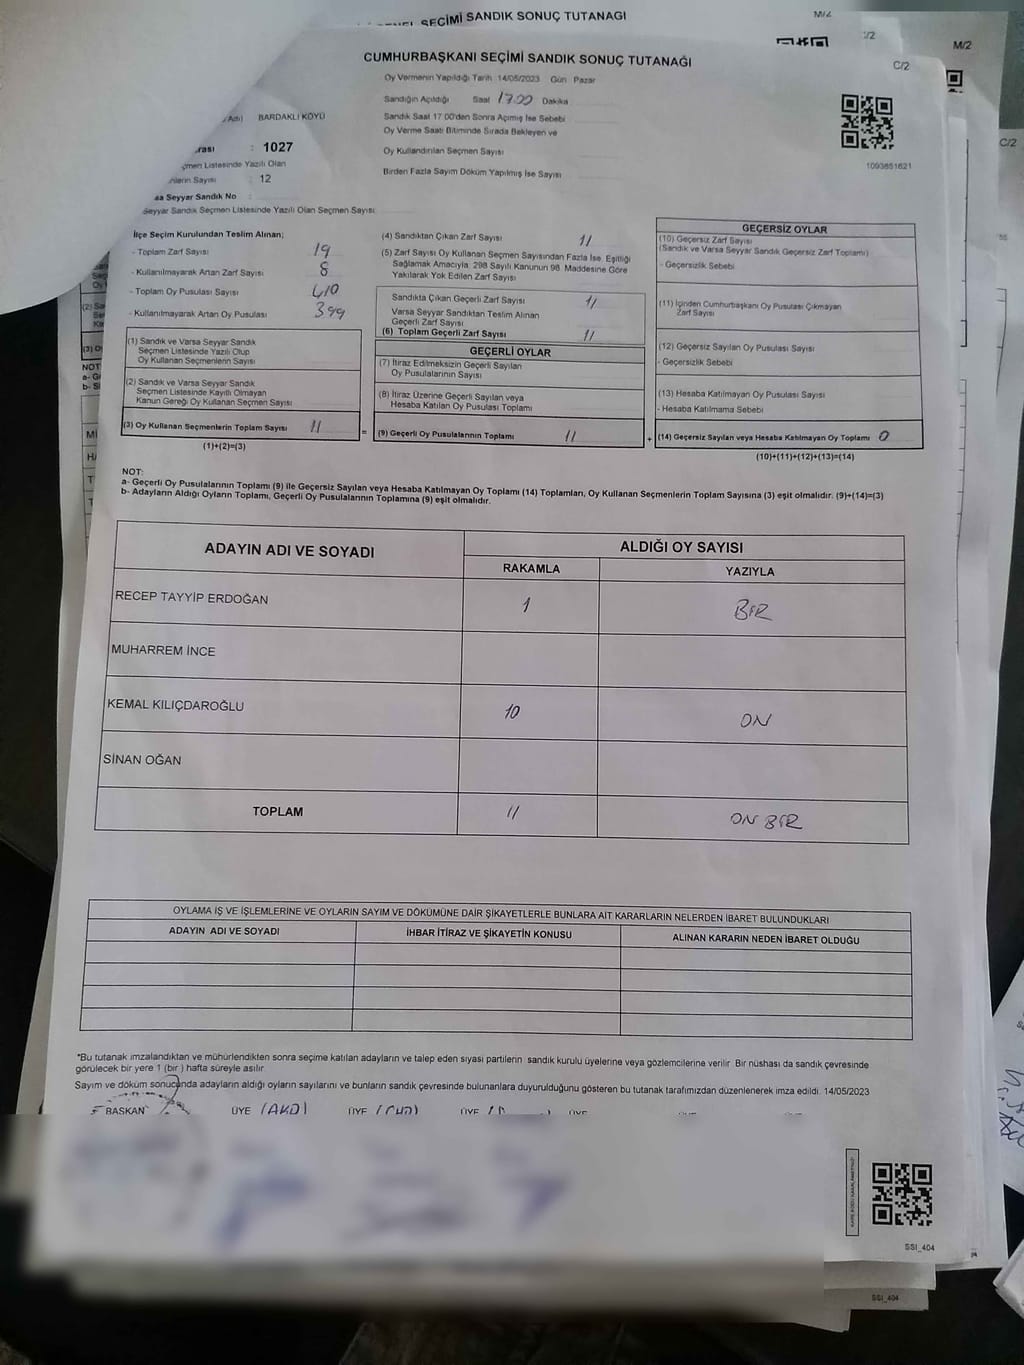 SEÇİMİ SANDIK SONUÇ TUTANAGI
M/2
C/2
CUMHURBAŞKANI SEÇİMİ SANDIK SONUÇ TUTANAĞI
C/2
M/2
Oy Vermenin Yapıldığı Tarih 14/05/2023 Gün Pazar
Sandığın Açıldığı Saat 17.00 Dakika
Adı) BARDAKLI KÖYÜ
Sandık Saat 17 00'den Sonra Açımış İse Sebebi
Oy Verme Saati Bitiminde Sırada Bekleyen ve
Oy Kullandırılan Seçmen Sayısı
Birden Fazla Sayım Döküm Yapılmış İse Sayısı
1093851621
C/2
: 1027
Listesinde Yazılı Olan
Sayısı : 12
Seyyar Sandık No
Seyyar Sandık Seçmen Listesinde Yazılı Olan Seçmen Sayısı
İlçe Seçim Kurulundan Teslim Alınan;
- Toplam Zarf Sayısı 19
- Kullanılmayarak Artan Zarf Sayısı 8
- Toplam Oy Pusulası Sayısı 410
- Kullanılmayarak Artan Oy Pusulası 399
(1) Sandık ve Varsa Seyyar Sandık
Seçmen Listesinde Yazılı Olup
Oy Kullanan Seçmenlerin Sayısı
(2) Sandık ve Varsa Seyyar Sandık
Seçmen Listesinde Kayıtlı Olmayan
Kanun Gereği Oy Kullanan Seçmen Sayısı
(3) Oy Kullanan Seçmenlerin Toplam Sayısı 11
(1)+(2)=(3)
(4) Sandıktan Çıkan Zarf Sayısı 11
(5) Zarf Sayısı Oy Kullanan Seçmen Sayısından Fazla İse, Eşitliği
Sağlamak Amacıyla, 298 Sayılı Kanunun 98 Maddesine Göre
Yakılarak Yok Edilen Zarf Sayısı
Sandıkta Çıkan Geçerli Zarf Sayısı 11
Varsa Seyyar Sandıktan Teslim Alınan
Geçerli Zarf Sayısı
(6) Toplam Geçerli Zarf Sayısı 11
GEÇERLİ OYLAR
(7) İtiraz Edilmeksizin Geçerli Sayılan
Oy Pusulalarının Sayısı
(8) İtiraz Üzerine Geçerli Sayılan veya
Hesaba Katılan Oy Pusulası Toplamı
= (9) Geçerli Oy Pusulalarının Toplamı 11
GEÇERSİZ OYLAR
(10) Geçersiz Zarf Sayısı
(Sandık ve Varsa Seyyar Sandık Geçersiz Zarf Toplamı)
- Geçersizlik Sebebi
(11) İçinden Cumhurbaşkanı Oy Pusulası Çıkmayan
Zarf Sayısı
(12) Geçersiz Sayılan Oy Pusulası Sayısı
- Geçersizlik Sebebi
(13) Hesaba Katılmayan Oy Pusulası Sayısı
- Hesaba Katılmama Sebebi
+ (14) Geçersiz Sayılan veya Hesaba Katılmayan Oy Toplamı 0
(10)+(11)+(12)+(13)=(14)
NOT:
a- Geçerli Oy Pusulalarının Toplamı (9) ile Geçersiz Sayılan veya Hesaba Katılmayan Oy Toplamı (14) Toplamları, Oy Kullanan Seçmenlerin Toplam Sayısına (3) eşit olmalıdır. (9)+(14)=(3)
b- Adayların Aldığı Oyların Toplamı, Geçerli Oy Pusulalarının Toplamına (9) eşit olmalıdır.
ADAYIN ADI VE SOYADI
ALDIĞI OY SAYISI
RAKAMLA
YAZIYLA
RECEP TAYYİP ERDOĞAN 1 BİR
MUHARREM İNCE
KEMAL KILIÇDAROĞLU 10 ON
SİNAN OĞAN
TOPLAM 11 ON BİR
OYLAMA İŞ VE İŞLEMLERİNE VE OYLARIN SAYIM VE DÖKÜMÜNE DAİR ŞİKAYETLERLE BUNLARA AİT KARARLARIN NELERDEN İBARET BULUNDUKLARI
ADAYIN ADI VE SOYADI
İHBAR İTİRAZ VE ŞİKAYETİN KONUSU
ALINAN KARARIN NEDEN İBARET OLDUĞU
*Bu tutanak imzalandıktan ve mühürlendikten sonra seçime katılan adayların ve talep eden siyasi partilerin sandık kurulu üyelerine veya gözlemcilerine verilir Bir nüshası da sandık çevresinde
görülecek bir yere 1 (bir ) hafta süreyle asılır
Sayım ve döküm sonucunda adayların aldığı oyların sayılarını ve bunların sandık çevresinde bulunanlara duyurulduğunu gösteren bu tutanak tarafımızdan düzenlenerek imza edildi. 14/05/2023
BAŞKAN ÜYE (AKP) ÜYE (CHP) ÜYE ÜYE
SSI_404
SSI_404